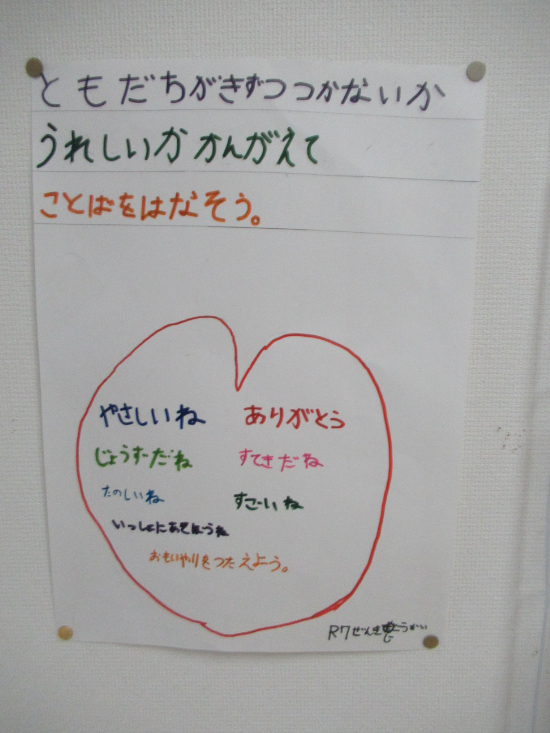 ともだちがきずつつかないか
うれしいかかんがえて
ことばをはなそう。
やさしいね ありがとう
じょうずーだね すてきだね
たのしいね すごーいね
いっしょにあそぼうね
おもいやりをつたえよう。
R7ぜんき